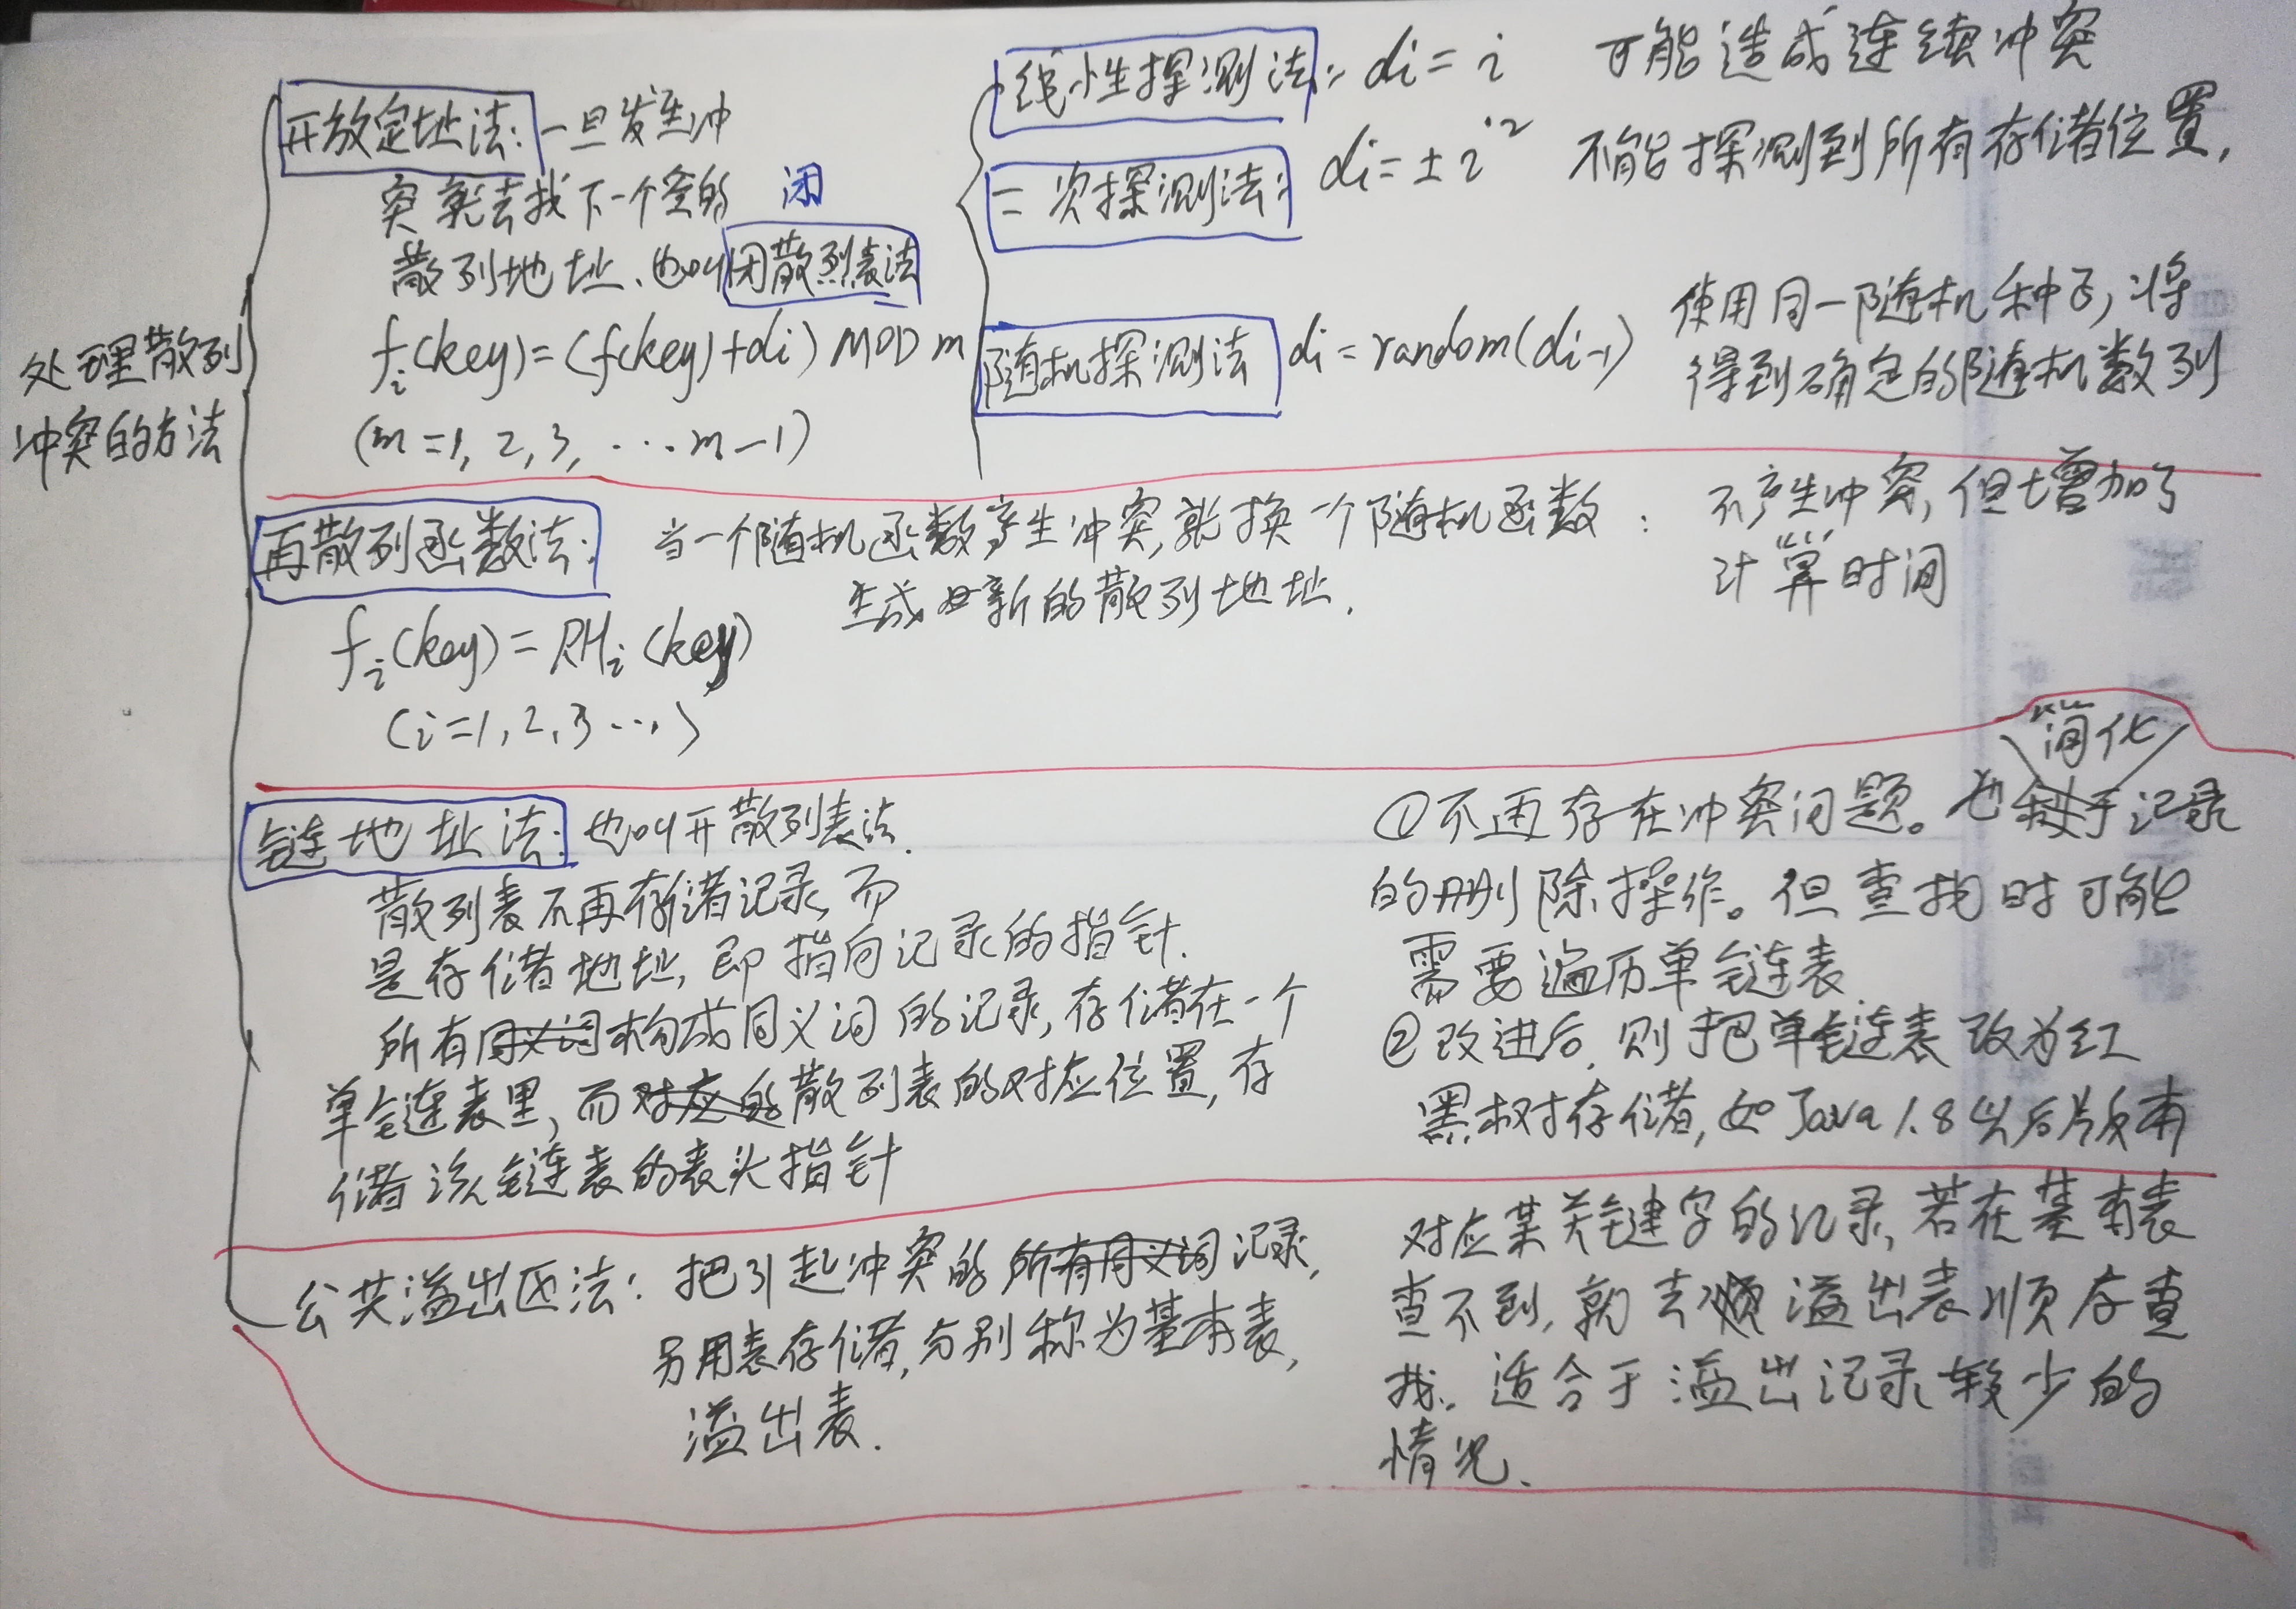 处理散列
冲突的方法
开放定址法:一旦发生冲
突就去找下一个空的
闭
散列地址、也叫闭散列表法
fi(key)=(f(key)+di) MOD m
(m=1, 2, 3, ... m-1)
线性探测法: di = i 可能造成连续冲突
二次探测法: di = ± i² 不能探测到所有存储位置,
随机探测法 di = random(di-1) 使用同一随机种子,将
得到确定的随机数列
再散列函数法: 当一个随机函数产生冲突,就换一个随机函数:
生成新的散列地址.
不产生冲突,但增加了
计算时间
fi(key) = RHi(key)
(i=1, 2, 3 ...)
链地址法: 也叫开散列表法.
散列表不再存储记录,而
是存储地址,即指向记录的指针.
所有构成同义词的记录,存储在一个
单链表里,而散列表的对应位置,存
储该链表的表头指针
简化
①不再存在冲突问题。也记录
的删除操作。但查找时可能
需要遍历单链表
②改进后,则把单链表改为红
黑树存储,如Java 1.8以后版本
公共溢出区法: 把引起冲突的记录,
另用表存储,分别称为基本表,
溢出表.
对应某关键字的记录,若在基本表
查不到,就去溢出表顺存查
找. 适合于溢出记录较少的
情况.